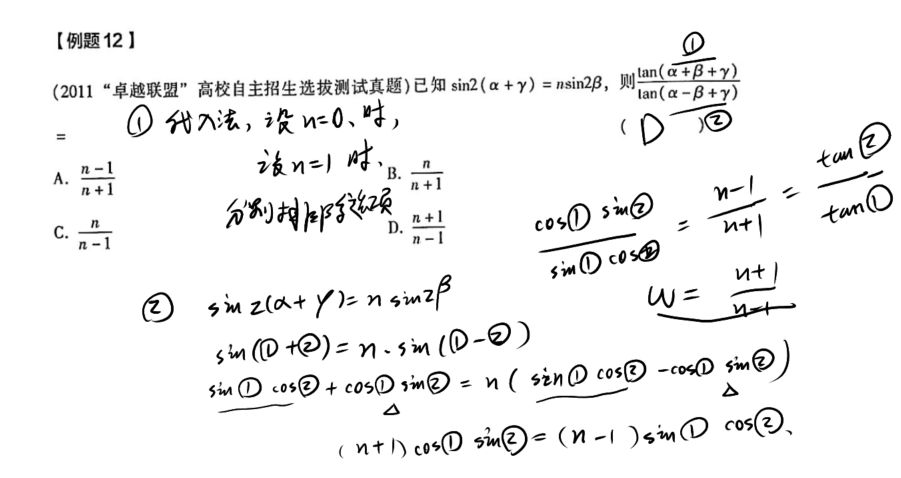 【例题12】
(2011“卓越联盟”高校自主招生选拔测试真题)已知 sin2(α+γ)=nsin2β, 则 tan(α+β+γ)/tan(α-β+γ)
①
②
= ( D )
A. (n-1)/(n+1)
B. n/(n+1)
C. n/(n-1)
D. (n+1)/(n-1)
① 代入法, 设 n=0、时,
设 n=1 时、
分别排除选项
cos① sin② / sin① cos② = (n-1)/(n+1) = tan②/tan①
W = (n+1)/(n-1)
② sin2(α+γ)=n sin2β
sin(①+②)=n·sin(①-②)
sin① cos②+cos① sin②=n(sin① cos②-cos① sin②)
△ △
(n+1)cos① sin②=(n-1)sin① cos②、